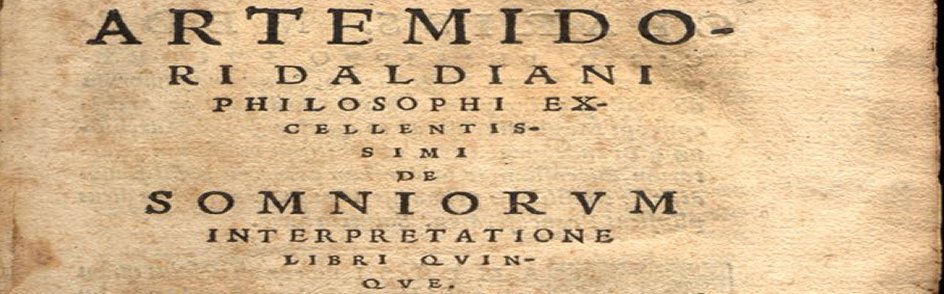 ARTEMIDO-
RI DALDIANI
PHILOSOPHI EX-
CELLENTIS-
SIMI
DE
SOMNIORVM
INTERPRETATIONE
LIBRI QVIN-
QVE.